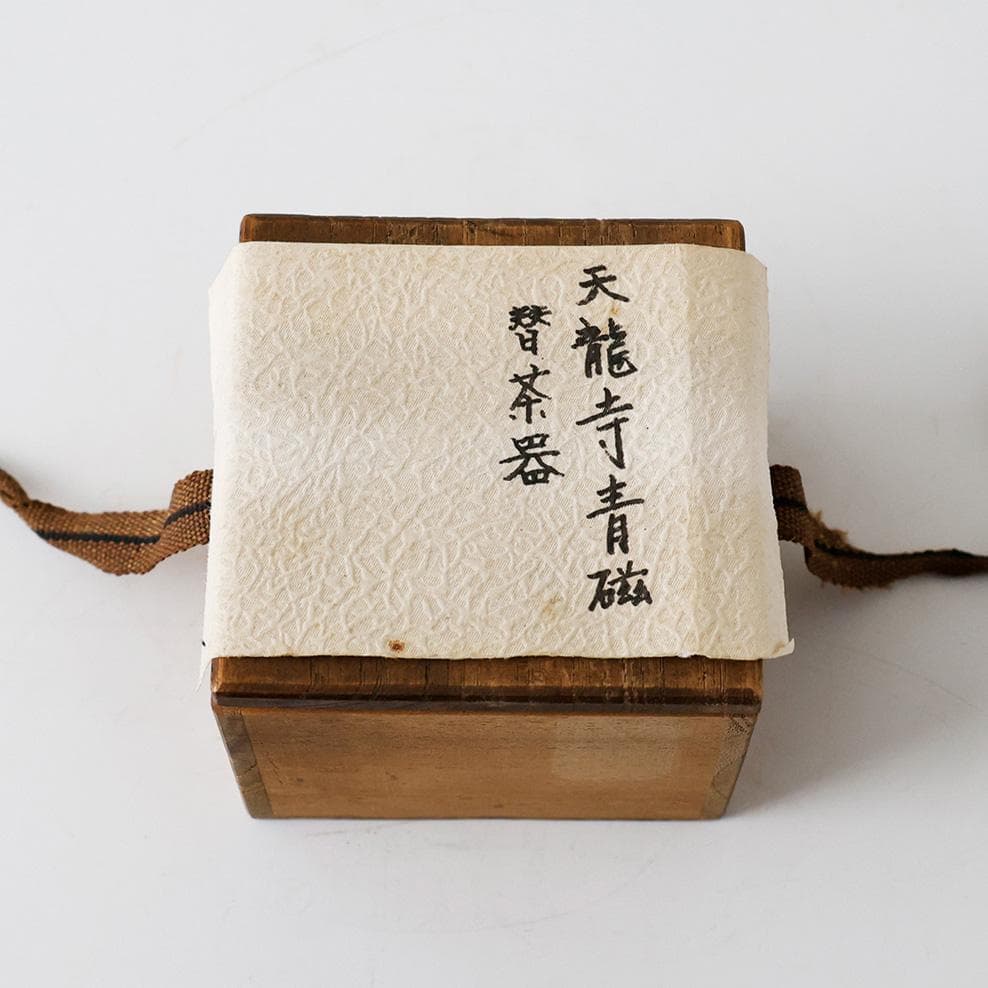 天龍寺青磁
替茶器